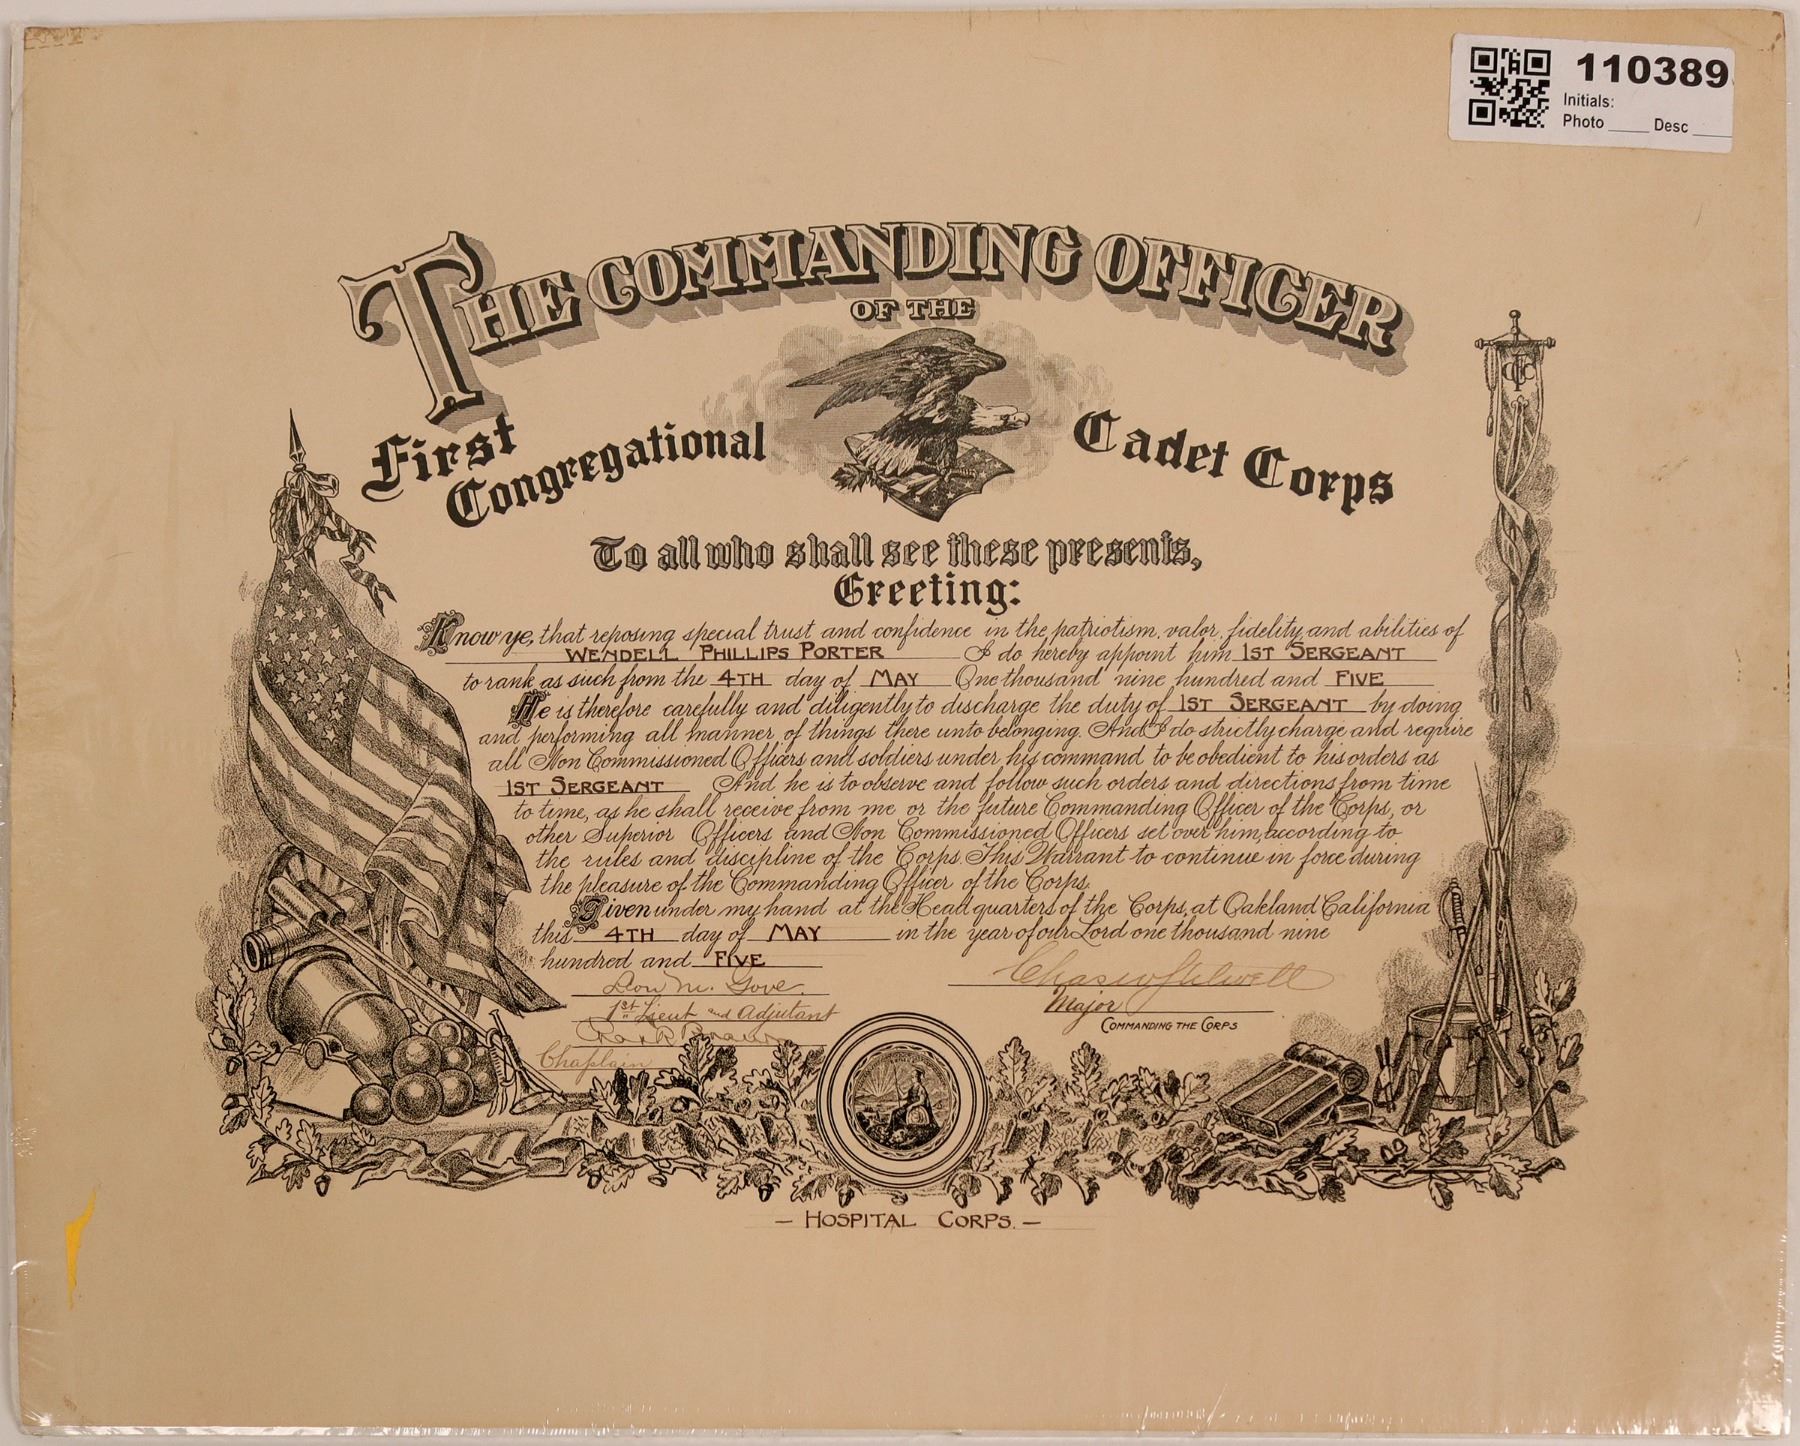 110389
Initials:
Photo ____ Desc ____
THE COMMANDING OFFICER
OF THE
First Congregational Cadet Corps
To all who shall see these presents,
Greeting:
Know ye, that reposing special trust and confidence in the patriotism, valor, fidelity and abilities of
WENDELL PHILLIPS PORTER I do hereby appoint him 1ST SERGEANT
to rank as such from the 4TH day of MAY One thousand nine hundred and FIVE
He is therefore carefully and diligently to discharge the duty of 1ST SERGEANT by doing
and performing all manner of things there unto belonging. And I do strictly charge and require
all Non Commissioned Officers and soldiers under his command to be obedient to his orders as
1ST SERGEANT And he is to observe and follow such orders and directions from time
to time, as he shall receive from me or the future Commanding Officer of the Corps, or
other Superior Officers and Non Commissioned Officers set over him, according to
the rules and discipline of the Corps. This Warrant to continue in force during
the pleasure of the Commanding Officer of the Corps.
Given under my hand at the Head quarters of the Corps, at Oakland California
this 4TH day of MAY in the year of our Lord one thousand nine
hundred and FIVE
Don M. Gove.
1st Lieut and Adjutant
Chaplain
Major
COMMANDING THE CORPS
- HOSPITAL CORPS. -